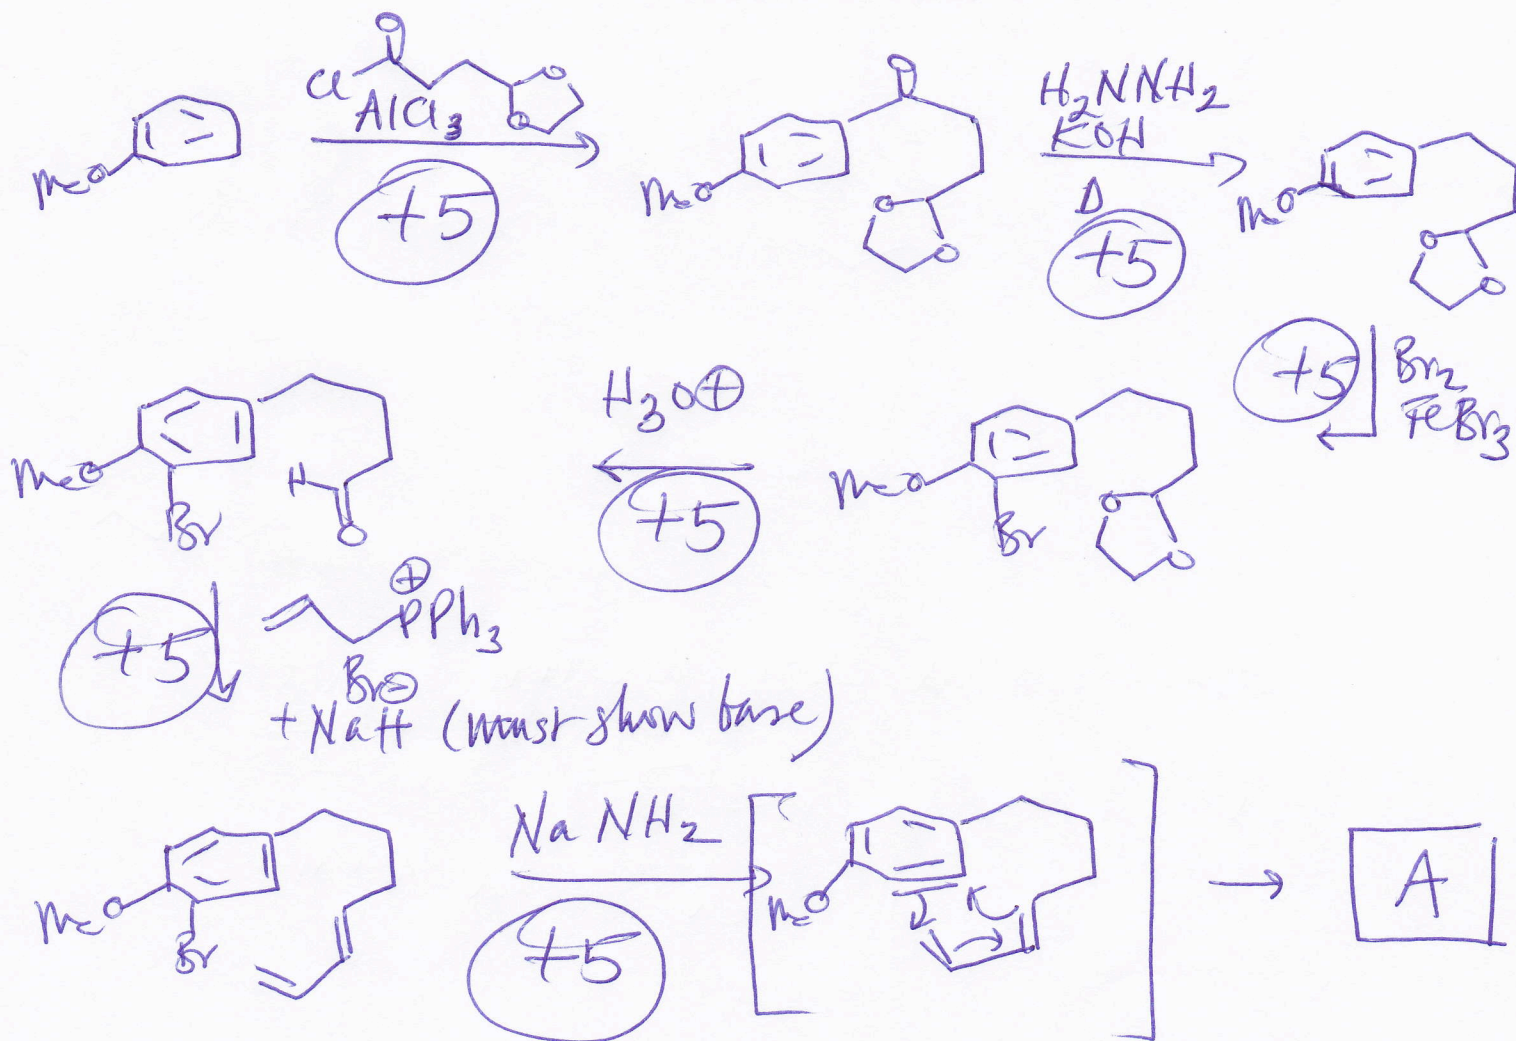 O
Cl
O
AlCl3
O
MeO
+5
O
MeO
O
O
H2NNH2
KOH
Δ
+5
MeO
O
O
+5
Br2
FeBr3
MeO
Br
O
O
H3O⊕
+5
MeO
Br
H
O
+5
⊕
PPh3
Br⊖
+ NaH (must show base)
MeO
Br
NaNH2
+5
MeO
A